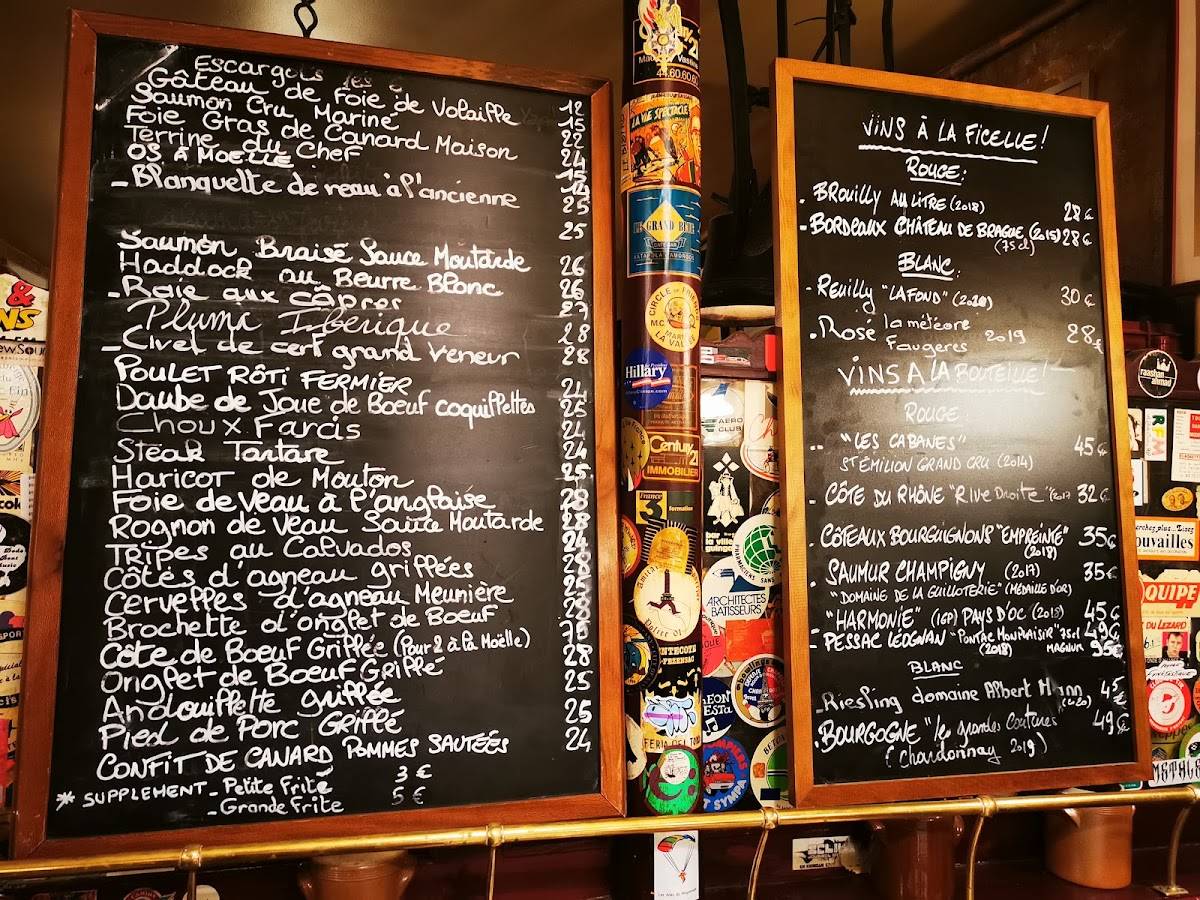 Escargots les
Gâteau de Foie de Volaille 12
Saumon Cru Mariné 15
Foie Gras de Canard Maison 22
Terrine du Chef
OS À MOELLE
- Blanquette de veau à l'ancienne 25
25
Saumon Braisé Sauce Moutarde 26
Haddock au Beurre Blanc 26
- Raie aux câpres 27
Pluma Iberique 28
- Civet de cerf grand veneur 28
POULET RÔTI FERMIER 24
Daube de Joue de Boeuf coquillettes 25
Choux Farcis 24
Steak Tartare 24
Haricot de Mouton 25
Foie de Veau à l'anglaise 28
Rognon de Veau Sauce Moutarde 28
TRIPES au Calvados 24
Côtes d'agneau grillées 28
Cervelles d'agneau Meunière 25
Brochette d'onglet de Boeuf 28
Côte de Boeuf Grillée (Pour 2 à la Moëlle) 78
Onglet de Boeuf Grillé 28
Andouillette grillée 25
Pied de Porc Grillé 25
CONFIT DE CANARD POMMES SAUTÉES 24
* SUPPLEMENT - Petite Frite 3 €
- Grande Frite 5 €
VINS À LA FICELLE !
ROUGE :
. BROUILLY AU LITRE (2018) 28 €
- BORDEAUX CHÂTEAU DE BRAGUE (2015) 28 €
(75cl)
BLANC :
. Reuilly "LAFOND" (2020) 30 €
. Rosé la météore 2019 28 €
Faugeres
VINS A LA BOUTEILLE !
ROUGE
- "LES CABANES" 45 €
ST ÉMILION GRAND CRU (2014)
- CÔTE DU RHÔNE "RIVE DROITE" 2017 32 €
. CÔTEAUX BOURGUIGNONS "EMPREINTE" 35 €
(2018)
. SAUMUR CHAMPIGNY (2017) 35 €
"DOMAINE DE LA GUILLOTERIE" (MÉDAILLE D'OR)
- "HARMONIE" (IGP) PAYS D'OC (2018) 45 €
- PESSAC LÉOGNAN "PONTAC MONPLAISIR" 75cl 49 €
(2018) MAGNUM 95 €
BLANC
- Riesling domaine Albert Mann (2020) 45 €
. BOURGOGNE "les grandes Coutures 49 €
(Chardonnay 2019)
44.60.60.60
LA VIE SPECTACLE
GRAND BLEU
CIRCLE
M.C.
Hillary
AERO
CLUB
Century 21
IMMOBILIER
France 3
ARCHITECTES
BATISSEURS
PENTECOTE
FERIA DEL
SYMPA
raashan
ahmad
ouvailles
DU LEZARD